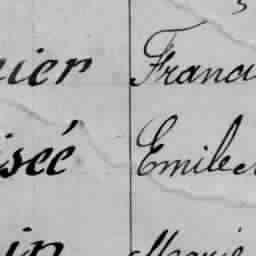 nier Franci
isée Emile
in Marie